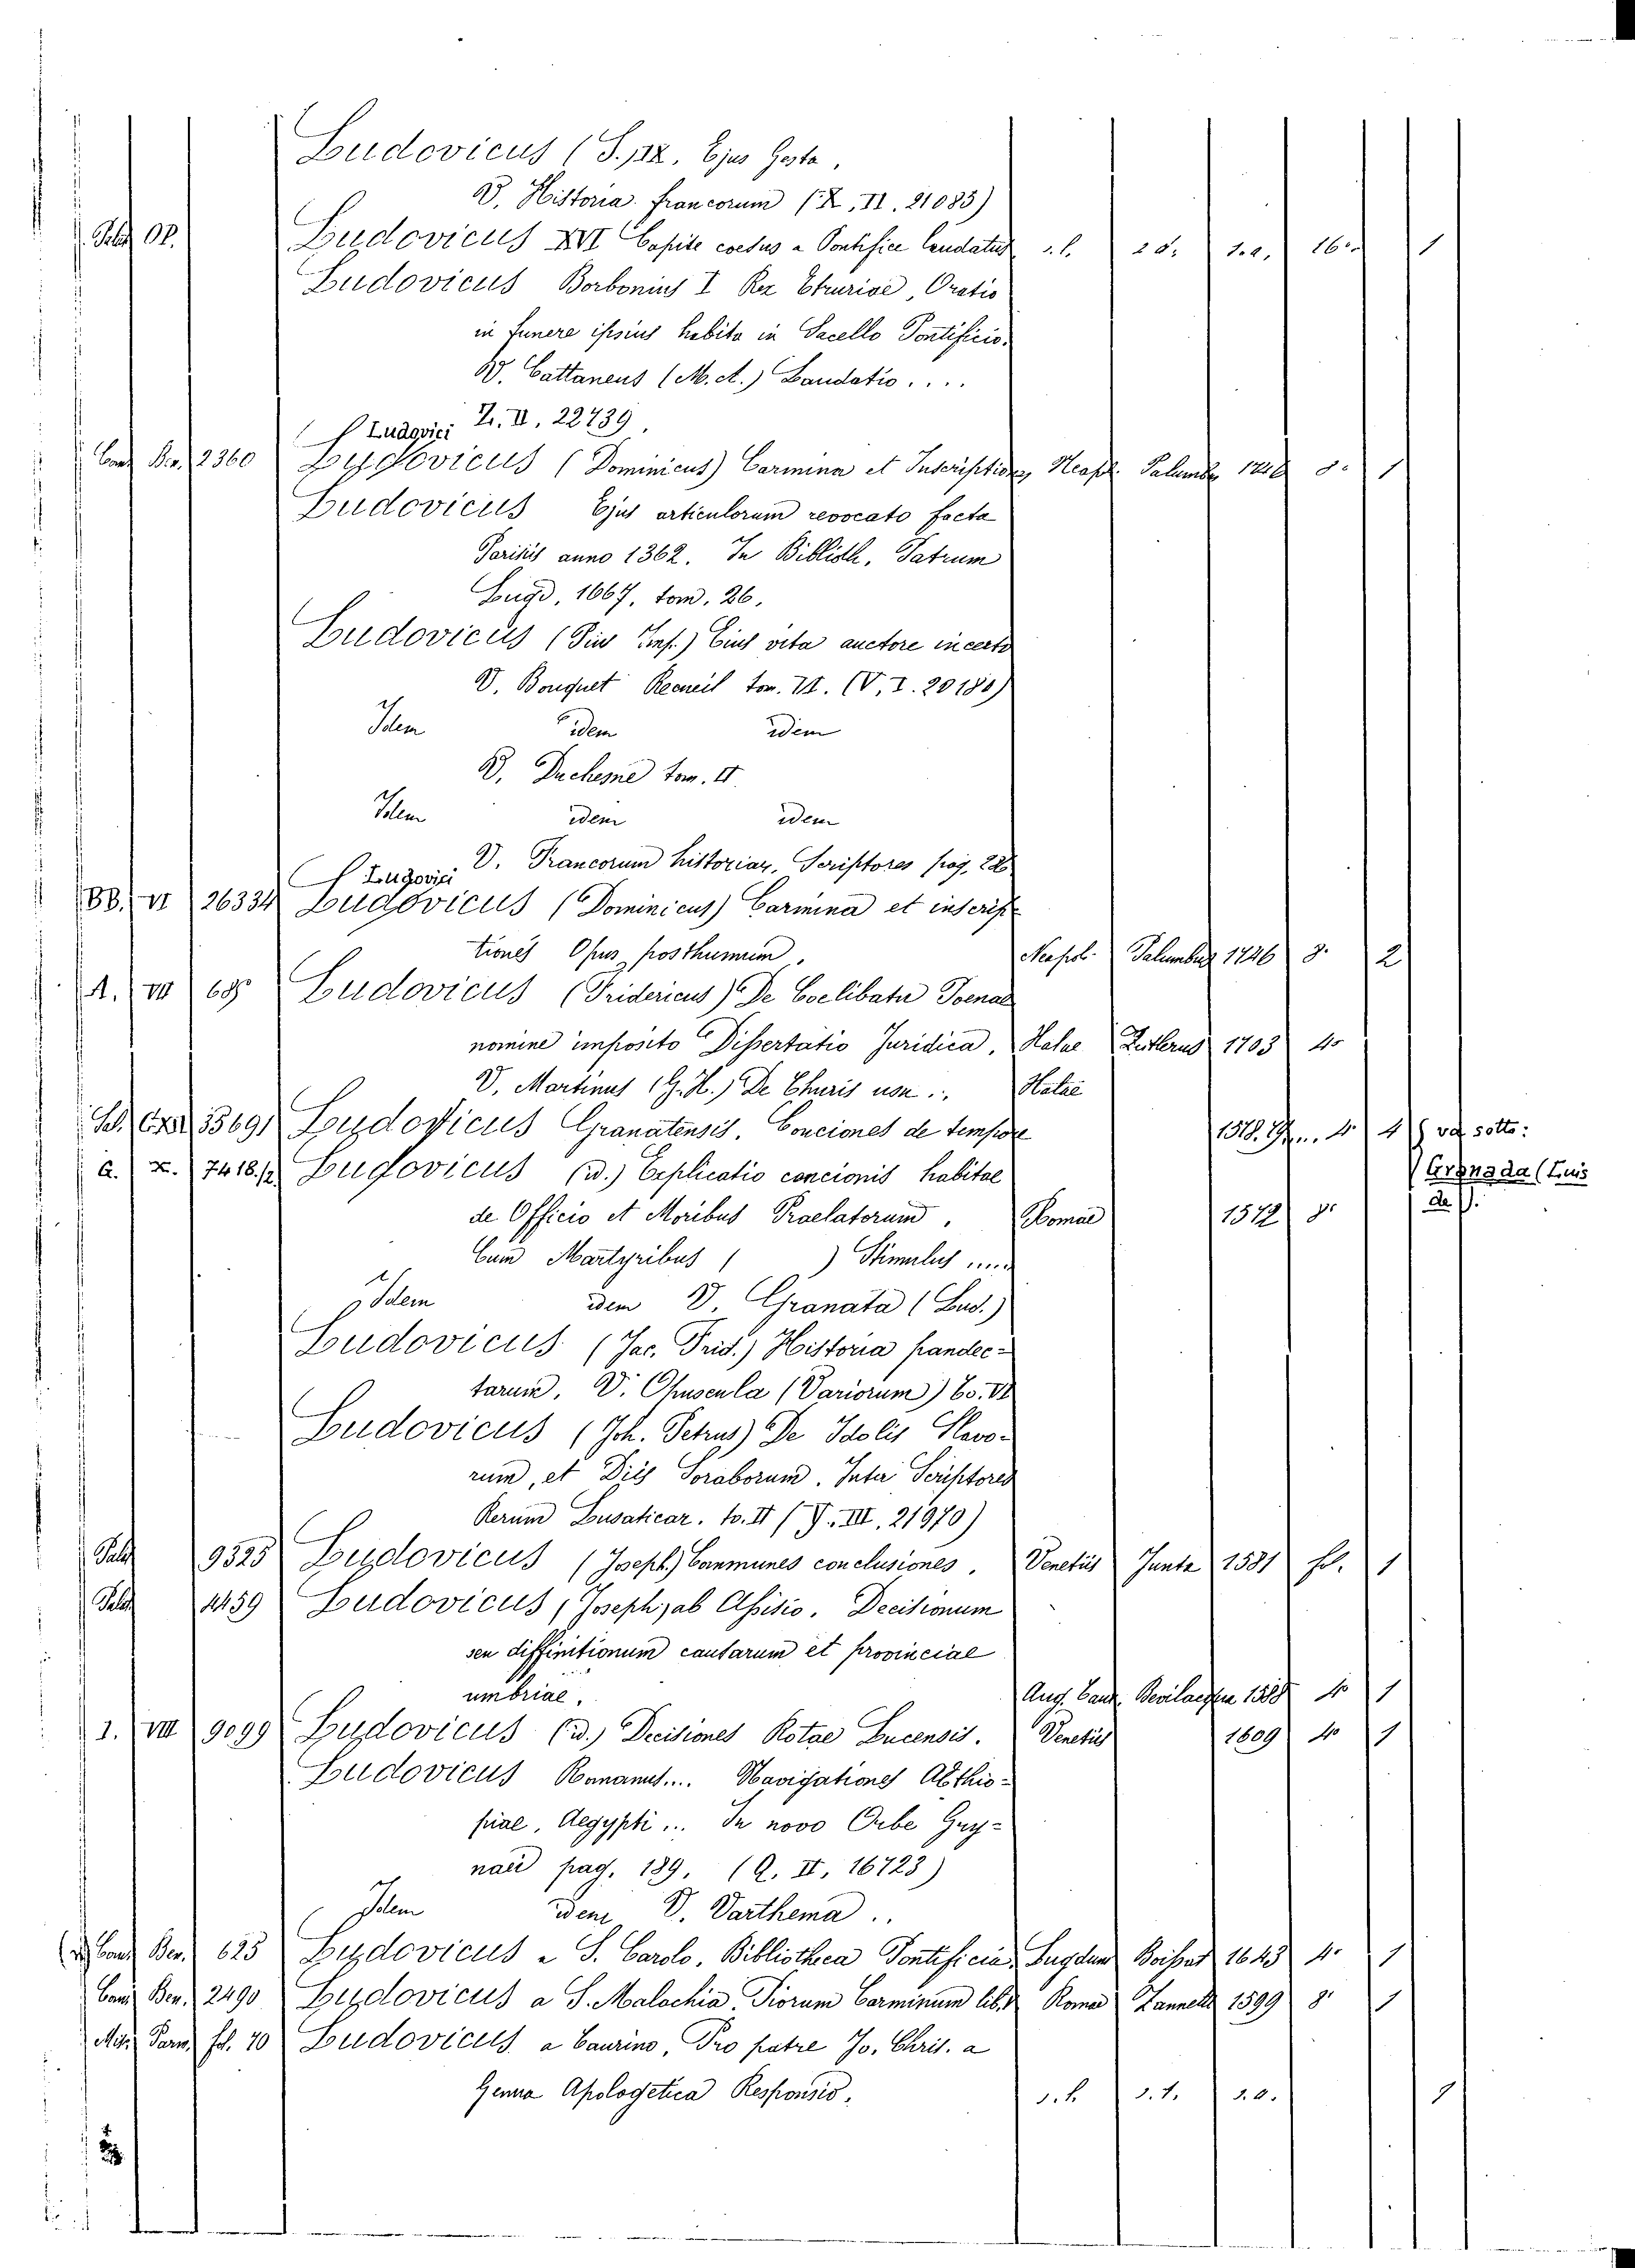 Ludovicus (S.) IX. Ejus Gesta,
V. Historia francorum (X, II. 21083)
Ludovicus XVI Capite coesus a Pontifice laudatus s. l. s. a. 16. 1
Ludovicus Borbonius I Rex Etruriae, Oratio
in funere ipsius habita in Sacello Pontificio.
V. Cattaneus (M. A.) Laudatio ....
Z. II. 22739.
Ludovici
Ber. 2360 Ludovicus (Dominicus) Carmina et Inscriptiones Neapl. Palumb. 8. 1
Ludovicus Ejus articulorum revocato facta
Parisis anno 1362. In Biblioth. Patrum
Lugd. 1667. tom. 26.
Ludovicus (Pius Imp.) Eius vita auctore incerto
V. Bouquet Recueil tom. VI. (V, I. 20180)
Idem idem idem
V. Duchesne tom. II
Idem idem idem
V. Francorum historiar. Scriptores pag.
Lugovici
BB. VI 26334 Ludovicus (Dominicus) Carmina et inscrip-
tiones Opus posthumum. Neapol. Palumbus 1746 8. 2
A. VII 69 Ludovicus (Fridericus) De Coelibatu Poenae
nomine imposito Dissertatio Juridica. Halae Zeitlerus 1703 4.
V. Martinus (G. H.) De Thuris usu .. Halae
35691 Ludovicus Granatensis. Conciones de tempore 4. 4 vd. sotto:
a. X. 7418./2 Ludovicus (id.) Explicatio concionis habitae Granada (Luis
de Officio et Moribus Praelatorum. Romae 1572 8. de).
Cum Martyribus ( ) Stimulus ....
Idem idem V. Granata (Lud.)
Ludovicus (Jac. Frid.) Historia pandec-
tarum. V. Opuscula (Variorum) to. VI
Ludovicus (Joh. Petrus) De Idolis Slavo-
rum, et Diis Soraborum. Inter Scriptores
Rerum Lusaticar. to. II (Y. III. 21970)
Palat 9325 Ludovicus (Joseph) Communes conclusiones. Venetiis Junta 1581 fol. 1
Palat 4459 Ludovicus (Joseph) ab Assisio. Decisionum
seu diffinitionum causarum et provinciae
umbriae. Aug. Bevilacqua 1588 4. 1
I. VIII 9099 Ludovicus (id.) Decisiones Rotae Lucensis. Venetiis 1609 4. 1
Ludovicus Romanus.... Navigationes Aethio-
piae, Aegypti ... In novo Orbe Gry-
naei pag. 189. (Q. II, 16723)
Idem idem V. Varthema ..
Ber. 625 Ludovicus a S. Carolo. Bibliotheca Pontificia. Lugdun Boissat 1643 4. 1
Ber. 2490 Ludovicus a S. Malachia. Piorum Carminum lib. Romae Zannetti 1599 8. 1
fol. 70 Ludovicus a Caurino, Pro patre Jo. Chris. a
Genua Apologetica Responsio. s. l. s. t. s. a. 1